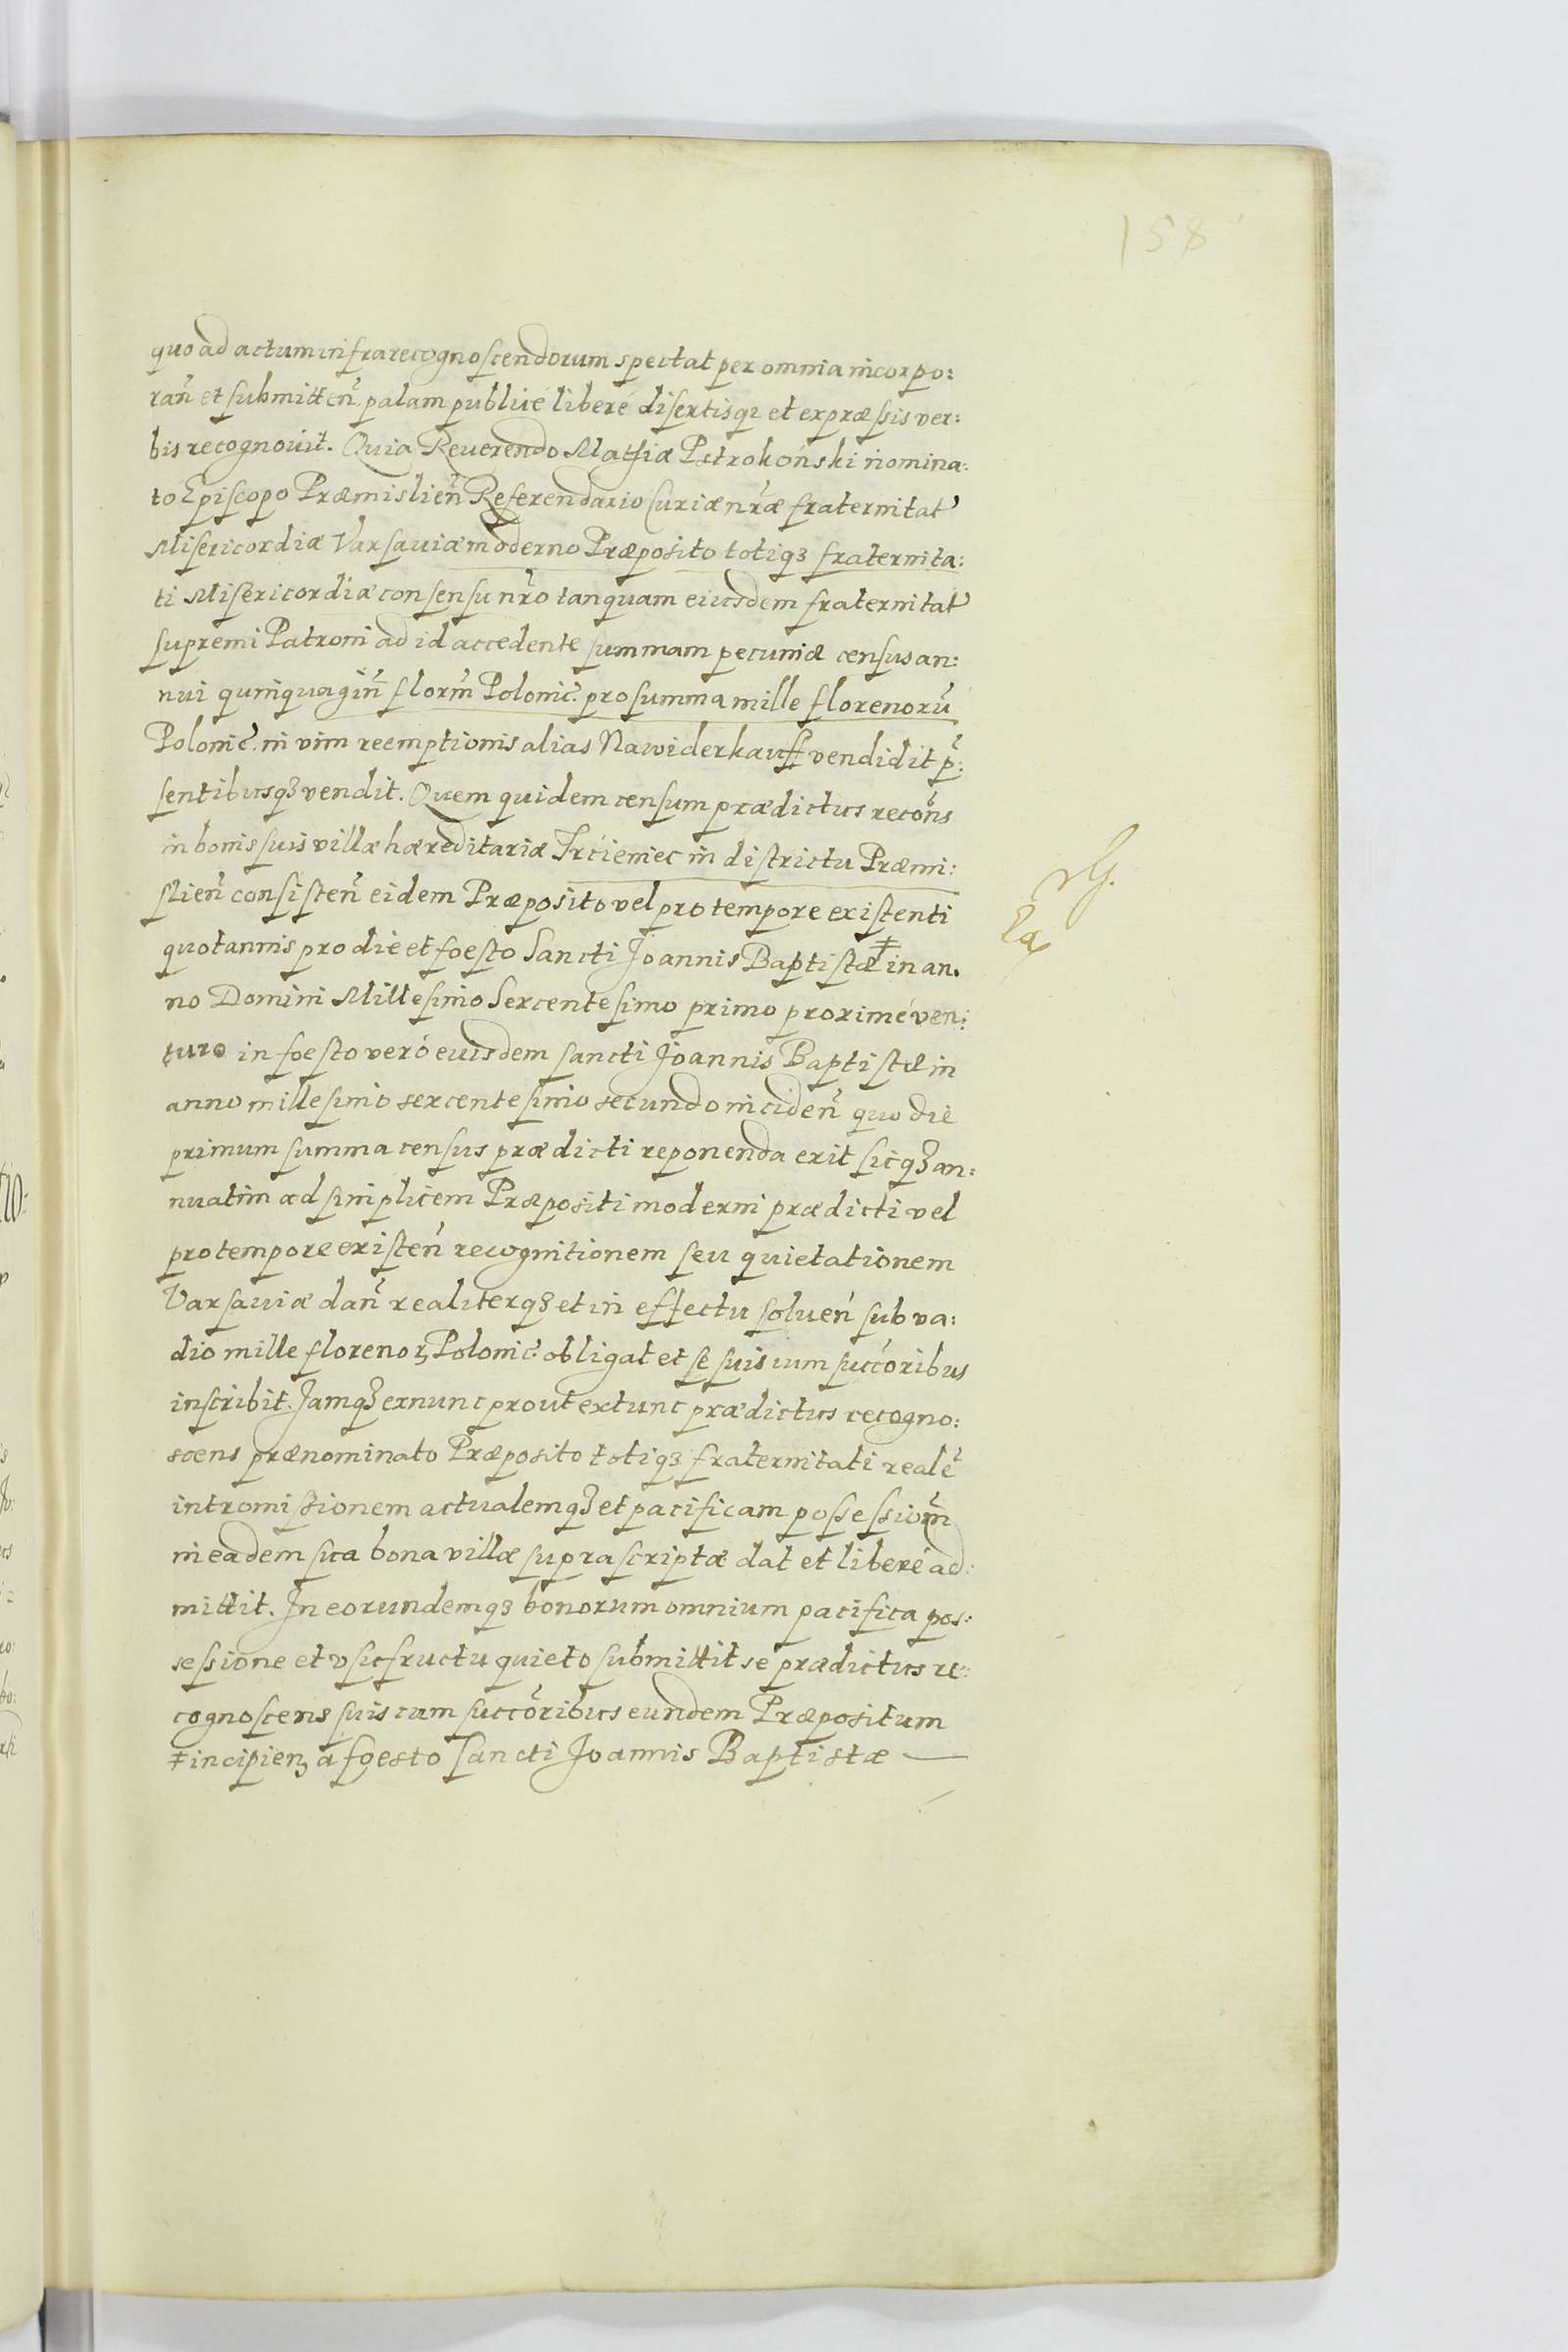 158
quo ad actum infrarecognoscendorum spectat per omnia incorpo:
rañ et submitteñ. palam publicé liberé disertisq₃ et expræssis ver:
bis recognovit. Quia Reuerendo Mathiæ Pstrokoński nomina:
to Episcopo Præmislieñ Referendario Curiæ nr̃æ fraternitat̃
Misericordiæ Varsauiæ moderno Præposito totiq₃ fraternita:
ti Misericordiæ consensu nr̃o tanquam eiusdem fraternitat̃
supremi Patroni ad id accedente summam pecuniæ census an:
nui quinquagiñ florm̃ Polonic̃. pro summa mille florenorũ
Polonic̃. in vim reemptionis alias Nawiderkauff vendidit p̃:
sentibusq₃ vendit. Quem quidem censum prædictus recoñs
in bonis suis villæ hæreditariæ Trcieniec in districtu Præmi:
slieñ consisteñ eidem Præposito vel pro tempore existenti
quotannis pro die et foesto Sancti Joannis Baptistæ ‡ in an.
no Domini Millesimo Sexcentesimo primo proximé ven:
turo in foesto veró euisdem sancti Joannis Baptistæ in
anno millesimo sexcentesimo secundo incideñ quo die
primum summa census prædicti reponenda erit sicq₃ an:
nuatim ad simplicem Præpositi moderni prædicti vel
pro tempore existeñ recognitionem seu quietationem
Varsauiæ dañ realiterq₃ et in effectu solueñ sub va:
dio mille florenoꝝ Polonic̃. obligat et se suis cum succ̃oribus
inscribit. Jamq₃ exnunc prout extunc prædictus recogno:
scens prænominato Præposito totiq₃ fraternitati realẽ
intromissionem actualemq₃ et pacificam possessiom̃
in eadem sua bona villæ suprascriptæ dat et liberé ad:
mittit. In eorundemq₃ bonorum omnium pacifica pos:
sessione et vsufructu quieto submittit se prædictus re:
cognoscens suis cum succ̃oribus eundem Præpositum
‡ incipienꝫ a foesto Sancti Joannis Baptistæ —